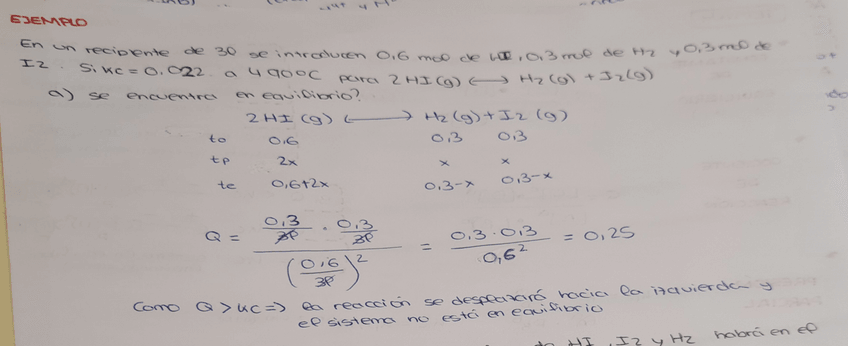 EJEMPLO
En un recipiente de 30 se introducen 0,6 mol de HI, 0,3 mol de H2 y 0,3 mol de
I2. Si Kc = 0.022 a 490ºC para 2HI(g) ⟷ H2(g) + I2(g)
a) se encuentra en equilibrio?
2HI(g) ⟷ H2(g) + I2(g)
to 0,6 0,3 0,3
tp 2x x x
te 0,6+2x 0,3-x 0,3-x
Q = (0,3/3l · 0,3/3l) / (0,6/3l)² = 0,3·0,3 / 0,6² = 0,25
Como Q > Kc => la reacción se desplazará hacia la izquierda y
el sistema no está en equilibrio
HI, I2 y H2 habrá en el